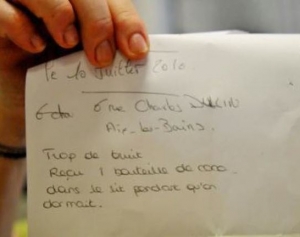 Le 10 Juillet 2010
6 rue Charles
Aix-les-Bains.
Trop de bruit
Reçu 1 bouteille de coca
dans le lit pendant qu'on
dormait.